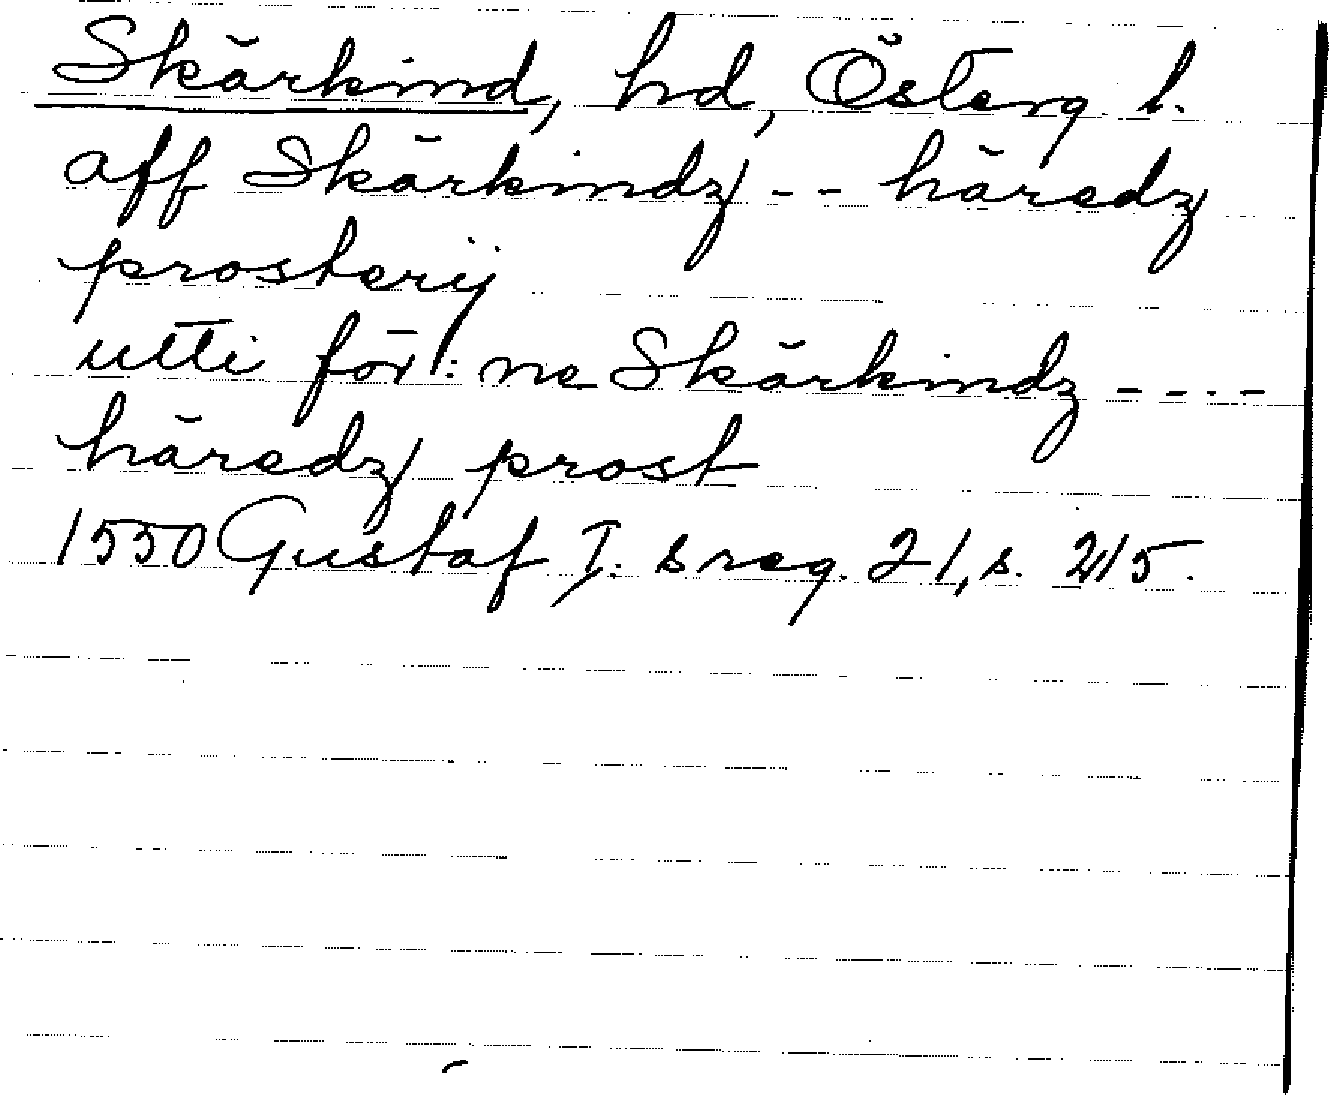 Skärkind, hd, Österg. l.
aff Skärkindz -- häredz
prosterij
utti för:ne Skärkindz ----
häredz prost
1550 Gustaf I:s reg. 21, s. 215.